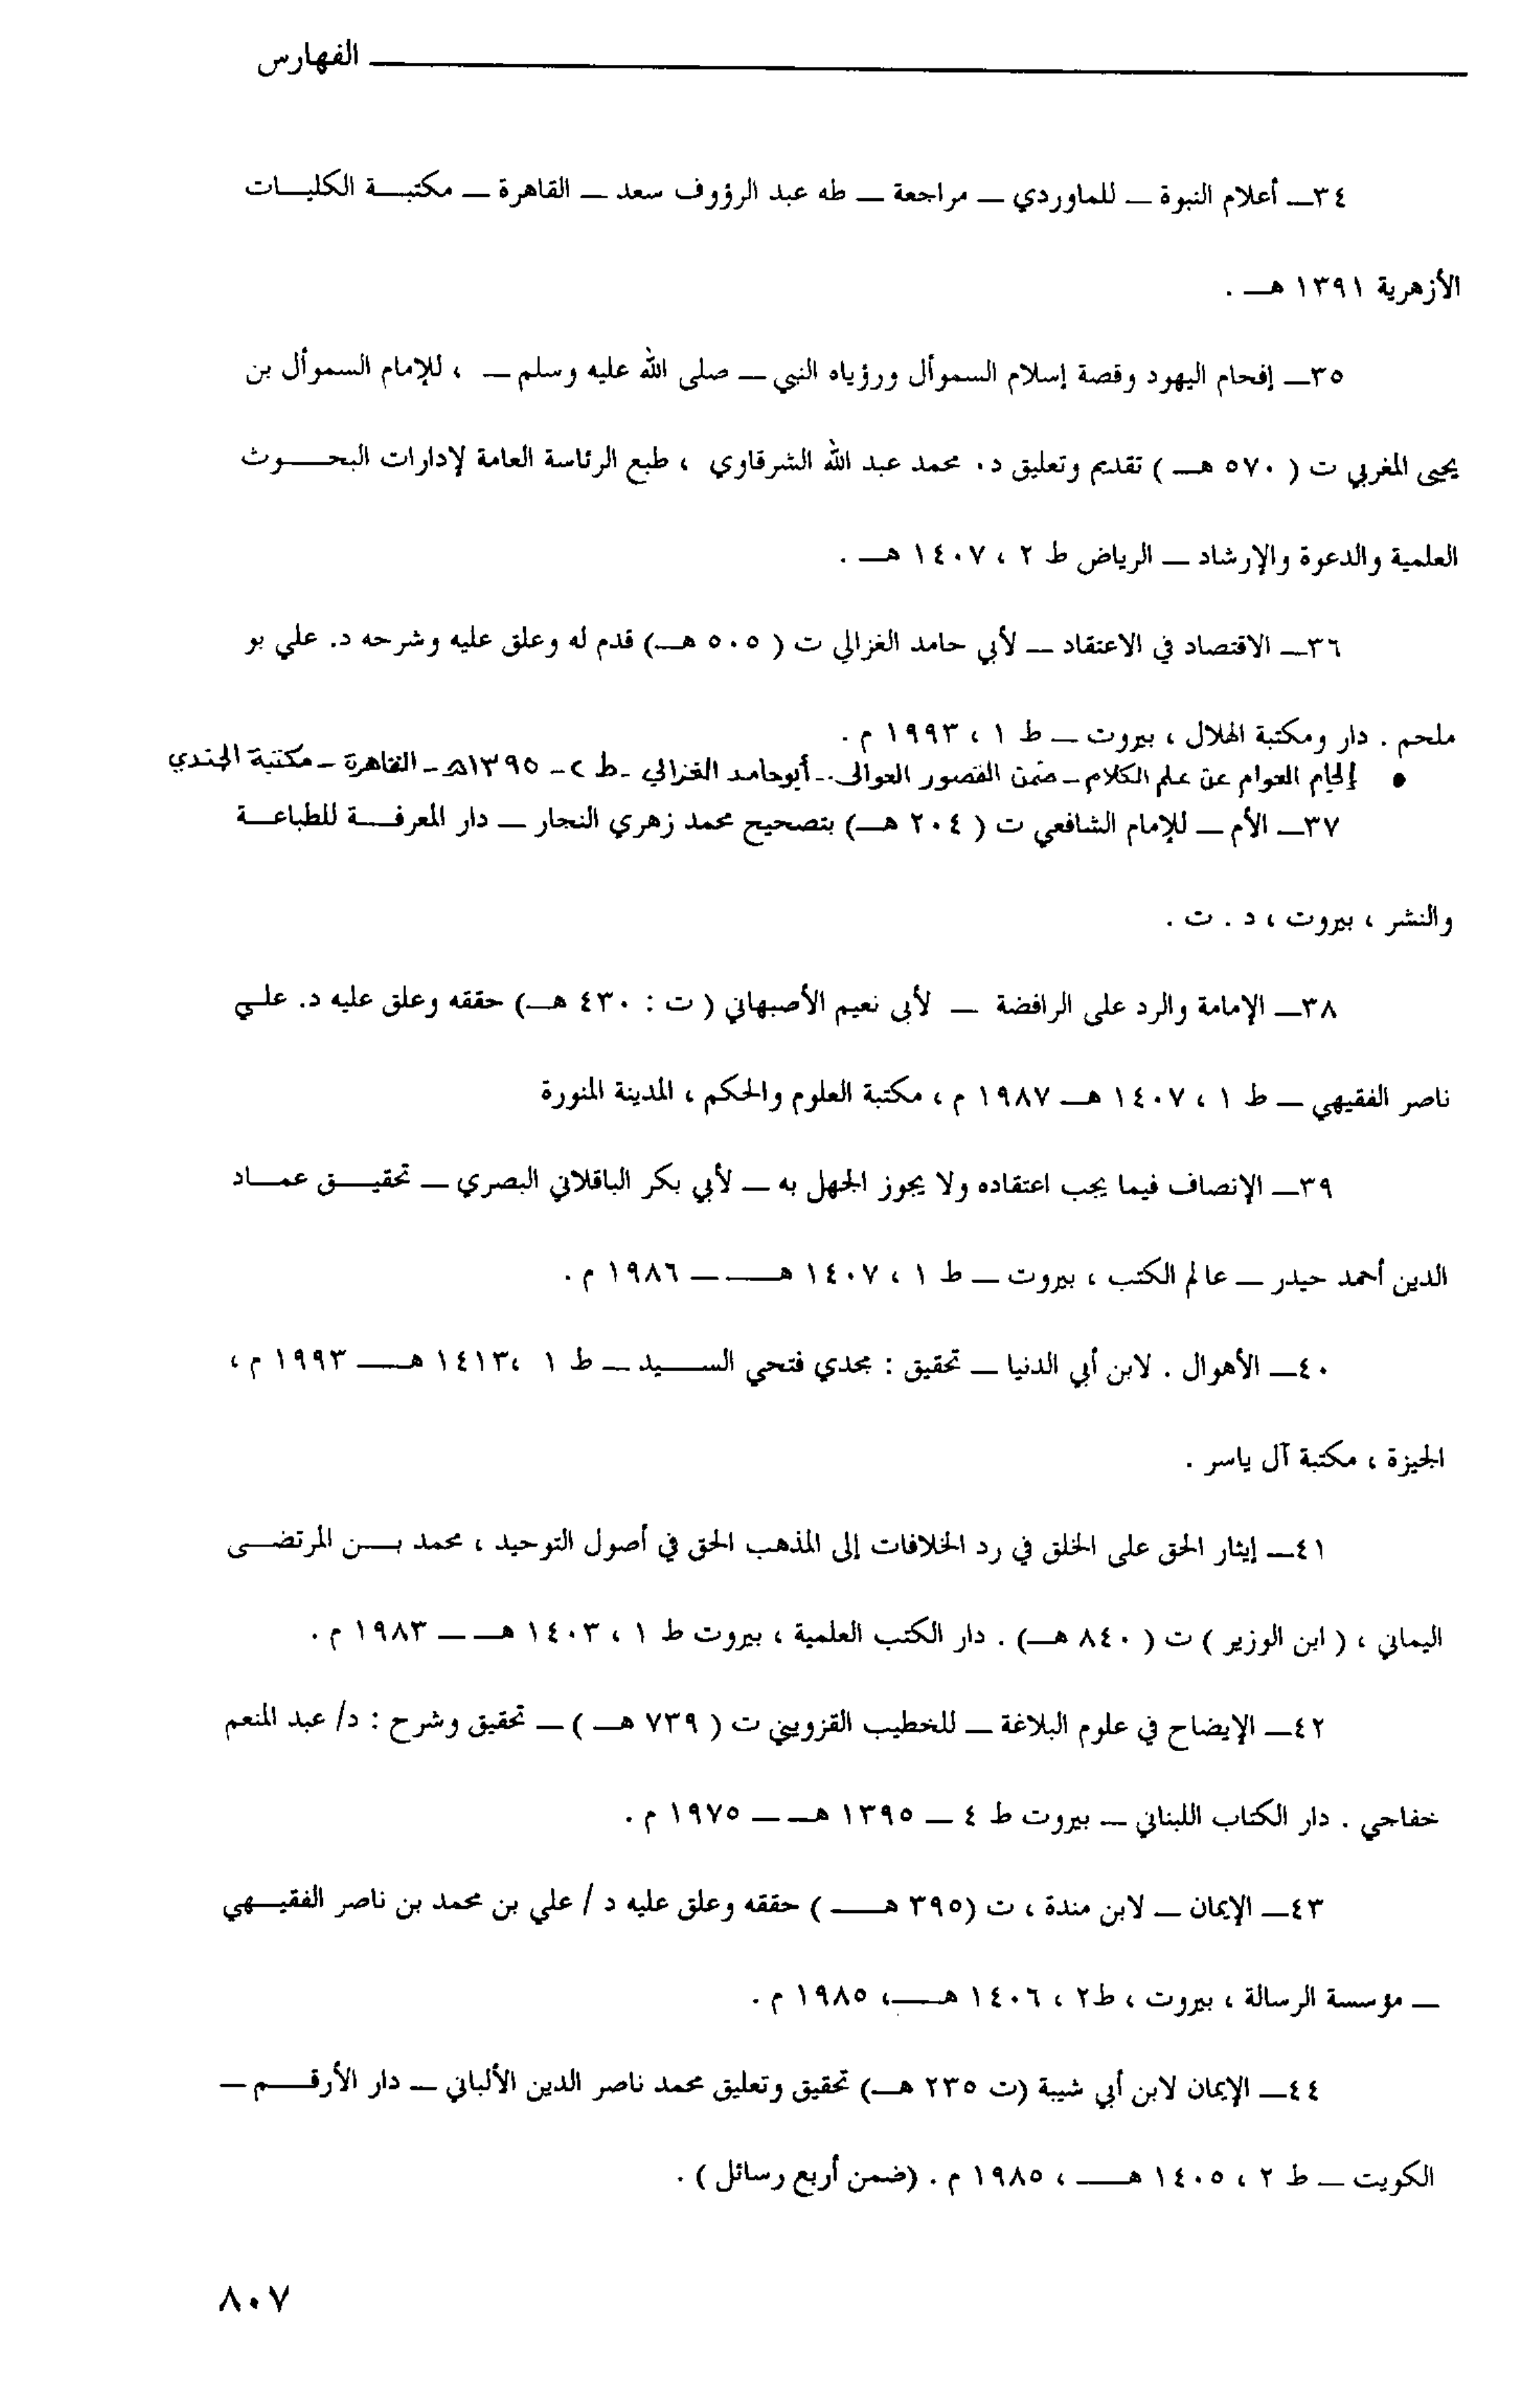 الفهارس
٣٤ــ أعلام النبوة ــ للماوردي ــ مراجعة ــ طه عبد الرؤوف سعد ــ القاهرة ــ مكتبة الكليات
الأزهرية ١٣٩١ هــ .
٣٥ــ إفحام اليهود وقصة إسلام السموأل ورؤياه النبي ــ صلى الله عليه وسلم ــ ، للإمام السموأل بن
يحيى المغربي ت ( ٥٧٠ هــ ) تقديم وتعليق د. محمد عبد الله الشرقاوي ، طبع الرئاسة العامة لإدارات البحوث
العلمية والدعوة والإرشاد ــ الرياض ط ٢ ، ١٤٠٧ هــ .
٣٦ــ الاقتصاد في الاعتقاد ــ لأبي حامد الغزالي ت ( ٥٠٥ هــ) قدم له وعلق عليه وشرحه د. علي بو
ملحم . دار ومكتبة الهلال ، بيروت ــ ط ١ ، ١٩٩٣ م .
• إلجام العوام عن علم الكلام - ضمن القصور العوالى .- أبوحامد الغزالي - ط ٢ - ١٣٩٥هـ - القاهرة - مكتبة الجندي
٣٧ــ الأم ــ للإمام الشافعي ت ( ٢٠٤ هــ) بتصحيح محمد زهري النجار ــ دار المعرفة للطباعة
والنشر ، بيروت ، د . ت .
٣٨ــ الإمامة والرد على الرافضة ــ لأبى نعيم الأصبهاني ( ت : ٤٣٠ هــ) حققه وعلق عليه د. علي
ناصر الفقيهي ــ ط ١ ، ١٤٠٧ هــ ١٩٨٧ م ، مكتبة العلوم والحكم ، المدينة المنورة
٣٩ــ الإنصاف فيما يجب اعتقاده ولا يجوز الجهل به ــ لأبي بكر الباقلاني البصري ــ تحقيق عماد
الدين أحمد حيدر ــ عالم الكتب ، بيروت ــ ط ١ ، ١٤٠٧ هــ ــ ١٩٨٦ م .
٤٠ــ الأهوال . لابن أبي الدنيا ــ تحقيق : مجدي فتحي السيد ــ ط ١ ،١٤١٣ هــ ١٩٩٣ م ،
الجيزة ، مكتبة آل ياسر .
٤١ــ إيثار الحق على الخلق في رد الخلافات إلى المذهب الحق في أصول التوحيد ، محمد بن المرتضى
اليماني ، ( ابن الوزير ) ت ( ٨٤٠ هــ) . دار الكتب العلمية ، بيروت ط ١ ، ١٤٠٣ هــ ــ ١٩٨٣ م .
٤٢ــ الإيضاح في علوم البلاغة ــ للخطيب القزويني ت ( ٧٣٩ هــ ) ــ تحقيق وشرح : د/ عبد المنعم
خفاجي . دار الكتاب اللبناني ــ بيروت ط ٤ ــ ١٣٩٥ هــ ــ ١٩٧٥ م .
٤٣ــ الإيمان ــ لابن مندة ، ت (٣٩٥ هــ ) حققه وعلق عليه د / علي بن محمد بن ناصر الفقيهي
ــ مؤسسة الرسالة ، بيروت ، ط٢ ، ١٤٠٦ هــ، ١٩٨٥ م .
٤٤ــ الإيمان لابن أبي شيبة (ت ٢٣٥ هــ) تحقيق وتعليق محمد ناصر الدين الألباني ــ دار الأرقم ــ
الكويت ــ ط ٢ ، ١٤٠٥ هــ ، ١٩٨٥ م . (ضمن أربع رسائل ) .
٨٠٧